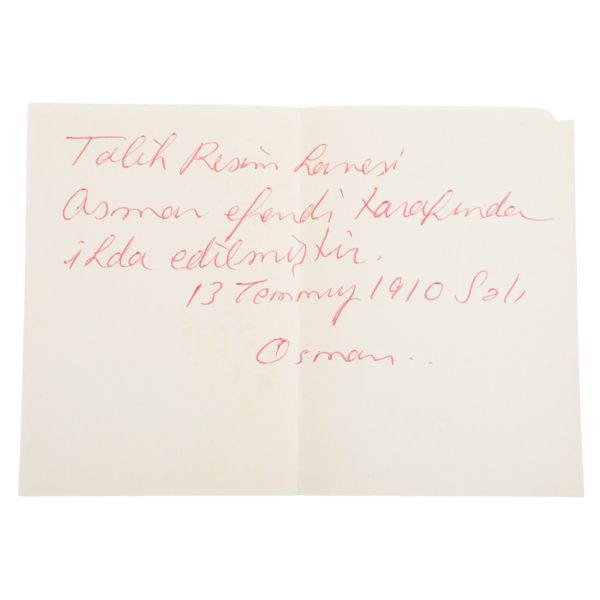 Talih Resim hanesi
Osman efendi tarafından
ihda edilmiştir.
13 Temmuz 1910 Salı
Osman..